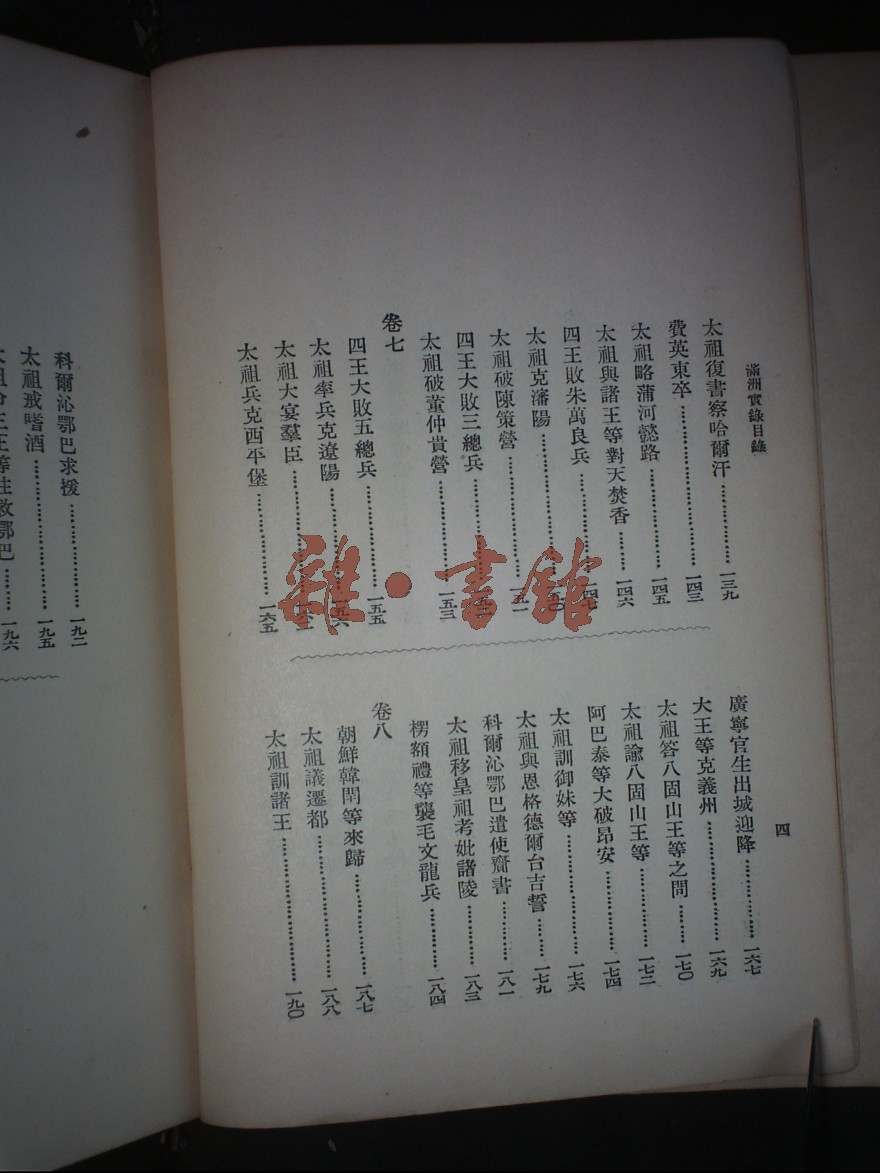 滿洲實錄目錄
四
太祖復書察哈爾汗…………一三九
費英東卒…………一四三
太祖略蒲河懿路…………一四五
太祖與諸王等對天焚香…………一四六
四王敗朱萬良兵…………一四七
太祖克瀋陽…………
太祖破陳策營…………
四王大敗三總兵…………
太祖破董仲貴營…………一五三
卷七
四王大敗五總兵…………一五五
太祖率兵克遼陽…………一五六
太祖大宴羣臣…………
太祖兵克西平堡…………一六五
廣寧官生出城迎降…………一六七
大王等克義州…………一六九
太祖答八固山王等之問…………一七〇
太祖諭八固山王等…………一七二
阿巴泰等大破昂安…………一七四
太祖訓御妹等…………一七六
太祖與恩格德爾台吉誓…………一七九
科爾沁鄂巴遣使齎書…………一八一
太祖移皇祖考妣諸陵…………一八三
楞額禮等襲毛文龍兵…………一八四
卷八
朝鮮韓閏等來歸…………一八七
太祖議遷都…………一八八
太祖訓諸王…………一九〇
科爾沁鄂巴求援…………一九二
太祖戒嗜酒…………一九五
王等往救鄂巴…………一九六
雜·書館